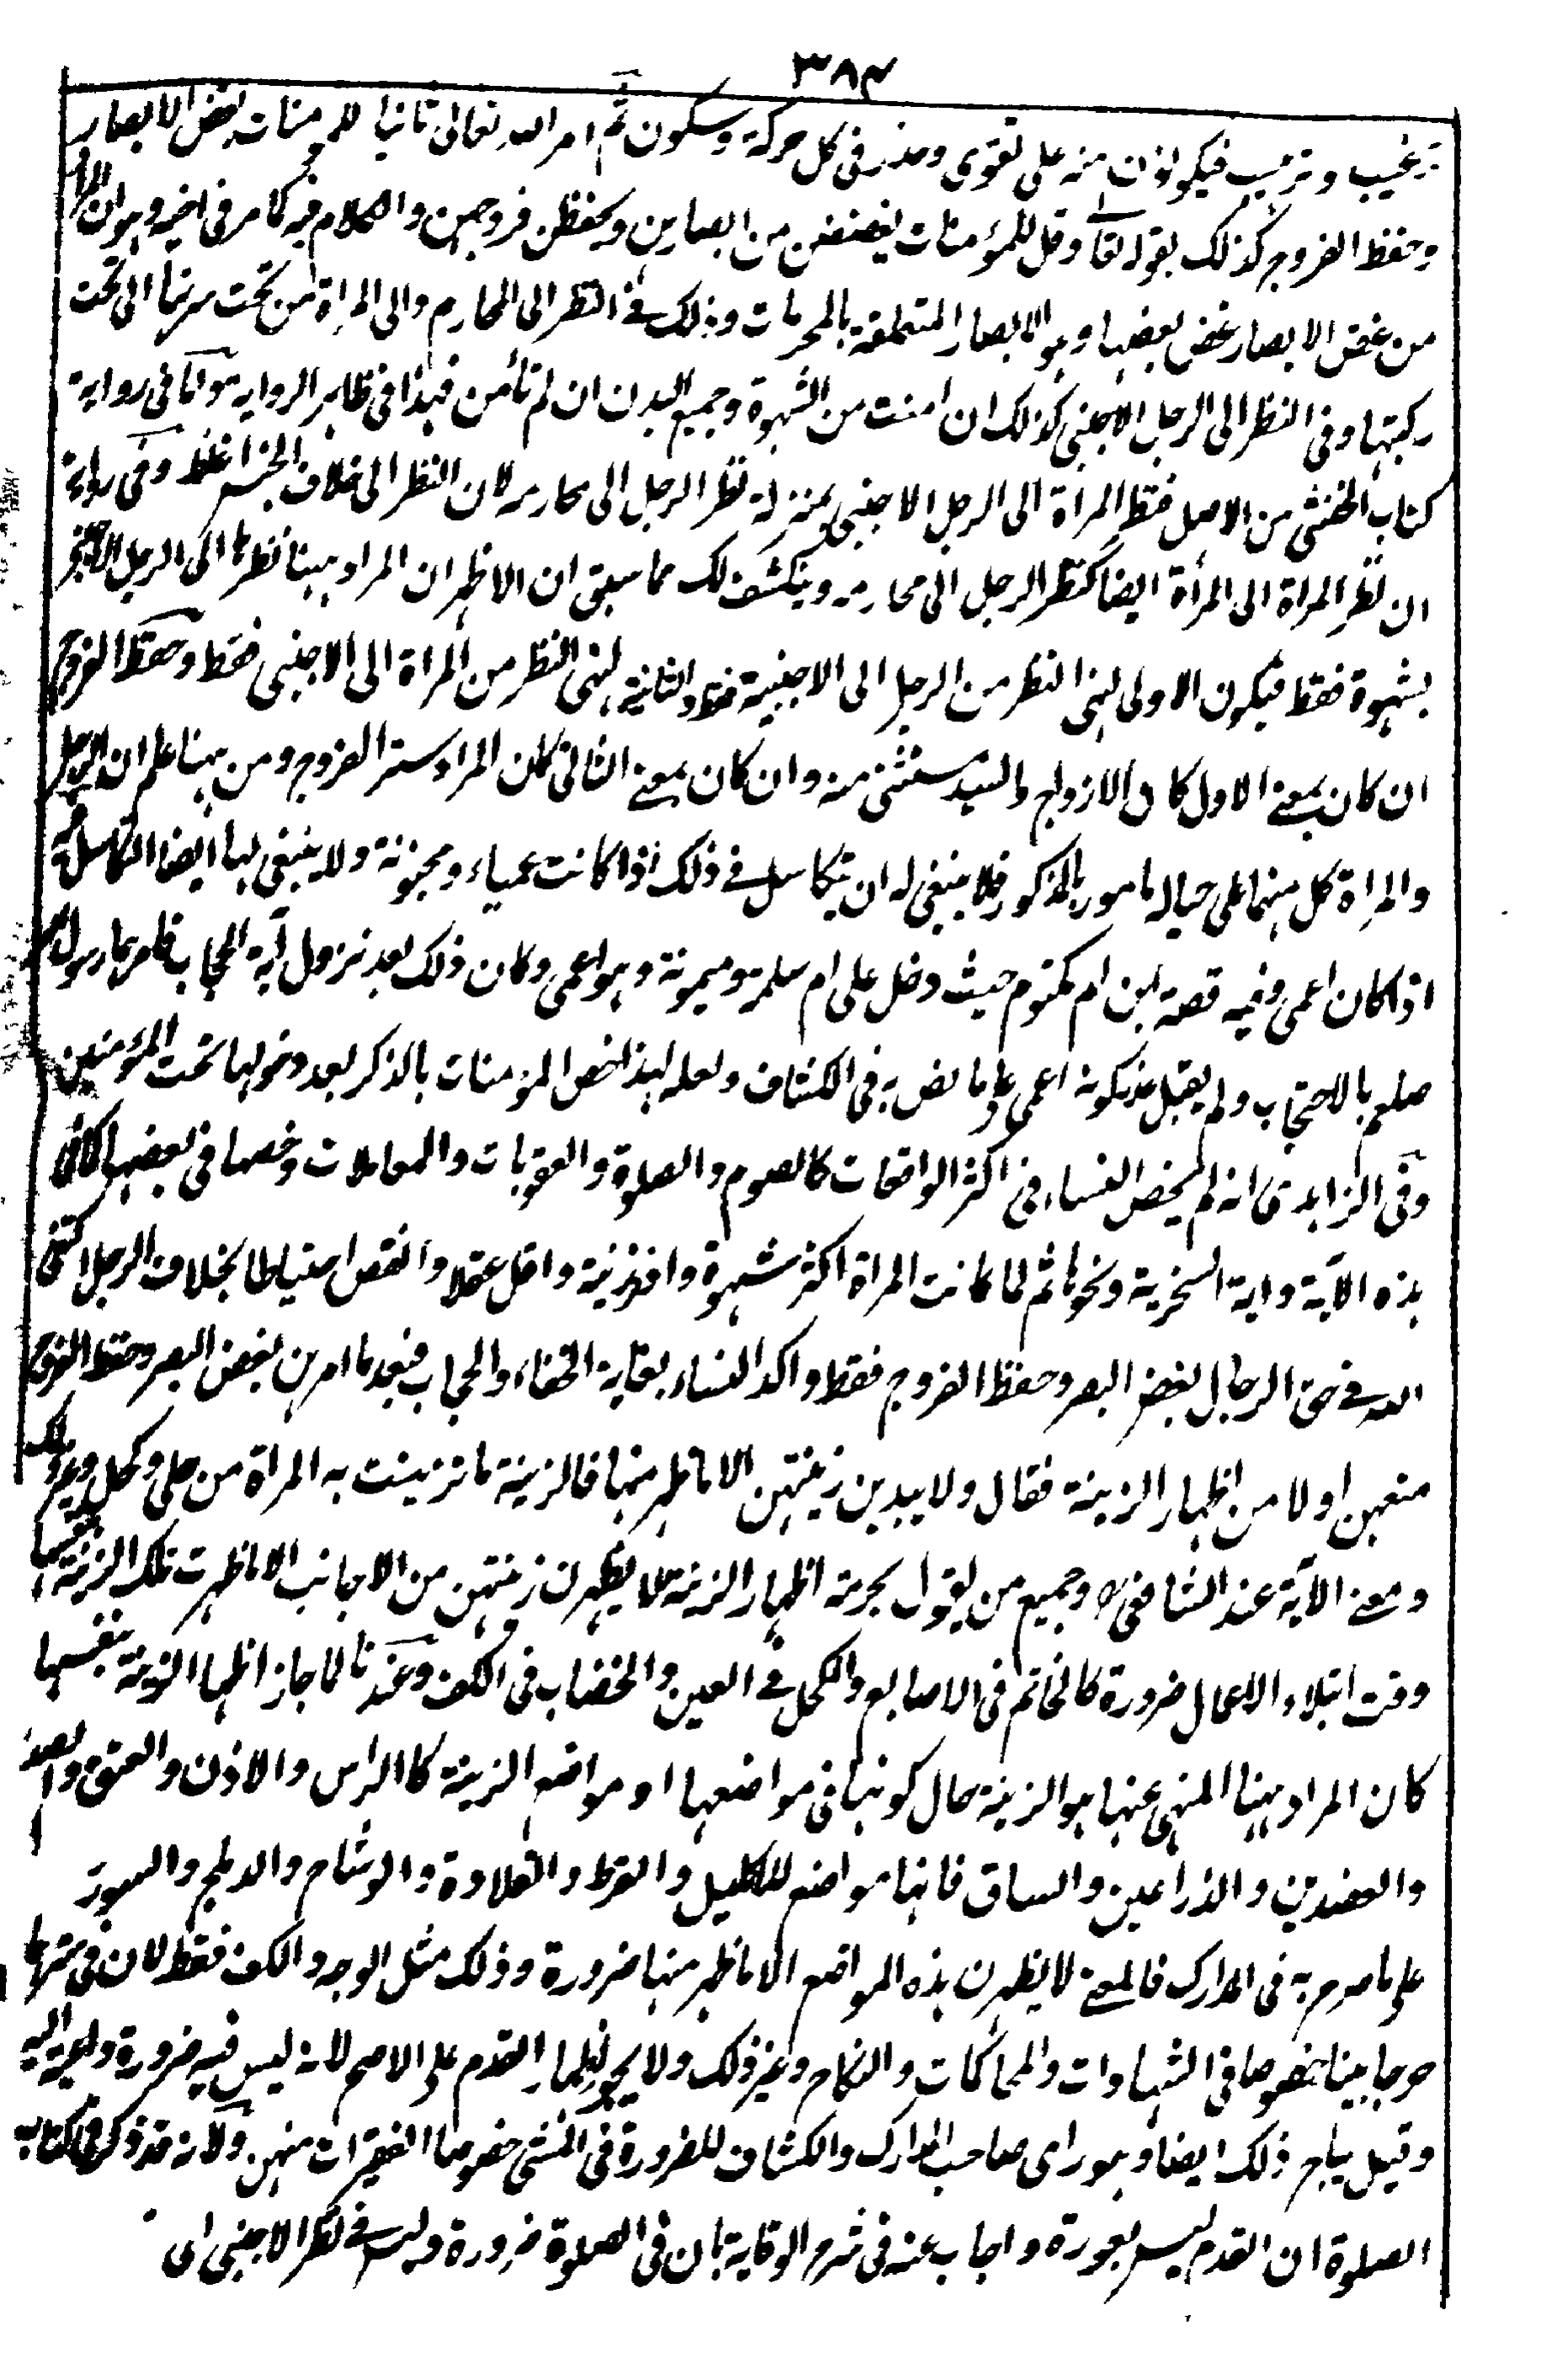 ٣٨٤
ترغيب وترهيب فيكونون منه على تقوى وحذر فى كل حركة وسكون ثم امر الله تعالى ثانيا للمؤمنات بغض الابصار
وحفظ الفروج كذلك بقوله تعا وقل للمؤمنات يغضضن من ابصارهن ويحفظن فروجهن والكلام فيه كما مر فى اخيه وهو ان المراد
من غض الابصار غض بعضها وهو الابصار المتعلقة بالمحرمات وذلك فى النظر الى المحارم والى المراة من تحت سرتها الى تحت
ركبتها وفى النظر الى الرجل الاجنبى كذلك ان امنت من الشهوة وجميع البدن ان لم تأمن فهذا فى ظاهر الرواية واما فى رواية
كتاب الخنثى من الاصل فنظر المرأة الى الرجل الاجنبى بمنزلة نظر الرجل الى محارمه لان النظر الى خلاف الجنس اغلظ وفى رواية
ان نظر المراة الى المرأة ايضا كنظر الرجل الى محارمه وينكشف لك مما سبق ان الاظهر ان المراد ههنا نظرها الى الرجل الاجنبى
بشهوة فقط فيكون الاولى لنهى النظر من الرجل الى الاجنبية فقط والثانية لنهى النظر من المراة الى الاجنبى فقط وحفظ الفروج
ان كان بمعنى الاول كان الازواج والسيد مستثنى منه وان كان بمعنى الثانى كان المراد ستر الفروج ومن ههنا علم ان الرجل
والمراة كل منهما على حياله مامور بالمذكور فلا ينبغى له ان يتكاسل فى ذلك اذا كانت عمياء ومجنونة ولا ينبغى لها ايضا التكاسل فيه
اذا كان اعمى وفيه قصة ابن ام مكتوم حيث دخل على ام سلمة وميمونة وهو اعمى وكان ذلك بعد نزول آية الحجاب فامرهما رسول الله
صلعم بالاحتجاب ولم يقبل عذر كونه اعمى على ما نص به فى الكشاف ولعله لهذا خص المؤمنات بالذكر بعد دخولها تحت المؤمنين
وفى الزاهدى انه لم يخص النساء فى اكثر الواقعات كالصوم والصلوة والعقوبات والمعاملات وخصها فى بعضها كما فى
هذه الآية واية السخرية ونحوها ثم لما كانت المراة اكثر شهوة وافر زينة واقل عقلا وانقص احتياطا بخلاف الرجل اكتفى
الله فى حق الرجال بغض البصر وحفظ الفروج فقط واكد النساء بغاية الخفاء والحجاب فبعد ما امرهن بغض البصر وحفظ الفروج
منعهن اولا من اظهار الزينة فقال ولا يبدين زينتهن الا ما ظهر منها فالزينة ما تزينت به المراة من حلى وكحل وغير ذلك
ومعنى الآية عند الشافعى رح وجميع من يقول بحرمة اظهار الزينة لا يظهرن زينتهن من الاجانب الا ما ظهرت تلك الزينة بنفسها
وقت ابتلاء الاعمال ضرورة كالخاتم فى الاصابع والكحل فى العين والخضاب فى الكف وعندنا لما جاز اظهار الزينة بنفسها
كان المراد ههنا المنهى عنها هو الزينة حال كونها فى مواضعها او مواضع الزينة كالراس والاذن والعنق والصدر
والعضدين والذراعين والساق فانها مواضع للاكليل والقرط والقلادة والوشاح والدملج والسوار
على ما صرح به فى المدارك فالمعنى لا يظهرن هذه المواضع الا ما ظهر منها ضرورة وذلك مثل الوجه والكف فقط لان فى سترها
حرجا بينا خصوصا فى الشهادات والمحاكمات والنكاح وغير ذلك ولا يجوز اظهار القدم على الاصح لانه ليس فيه ضرورة داعية اليه
وقيل يباح ذلك ايضا وهو راى صاحب المدارك والكشاف للضرورة فى المشى خصوصا الفقيرات منهن ولانه قد ذكر فى كتاب
الصلوة ان القدم ليس بعورة واجاب عنه فى شرح الوقاية بان فى الصلوة ضرورة وليس فى نظر الاجنبى اى